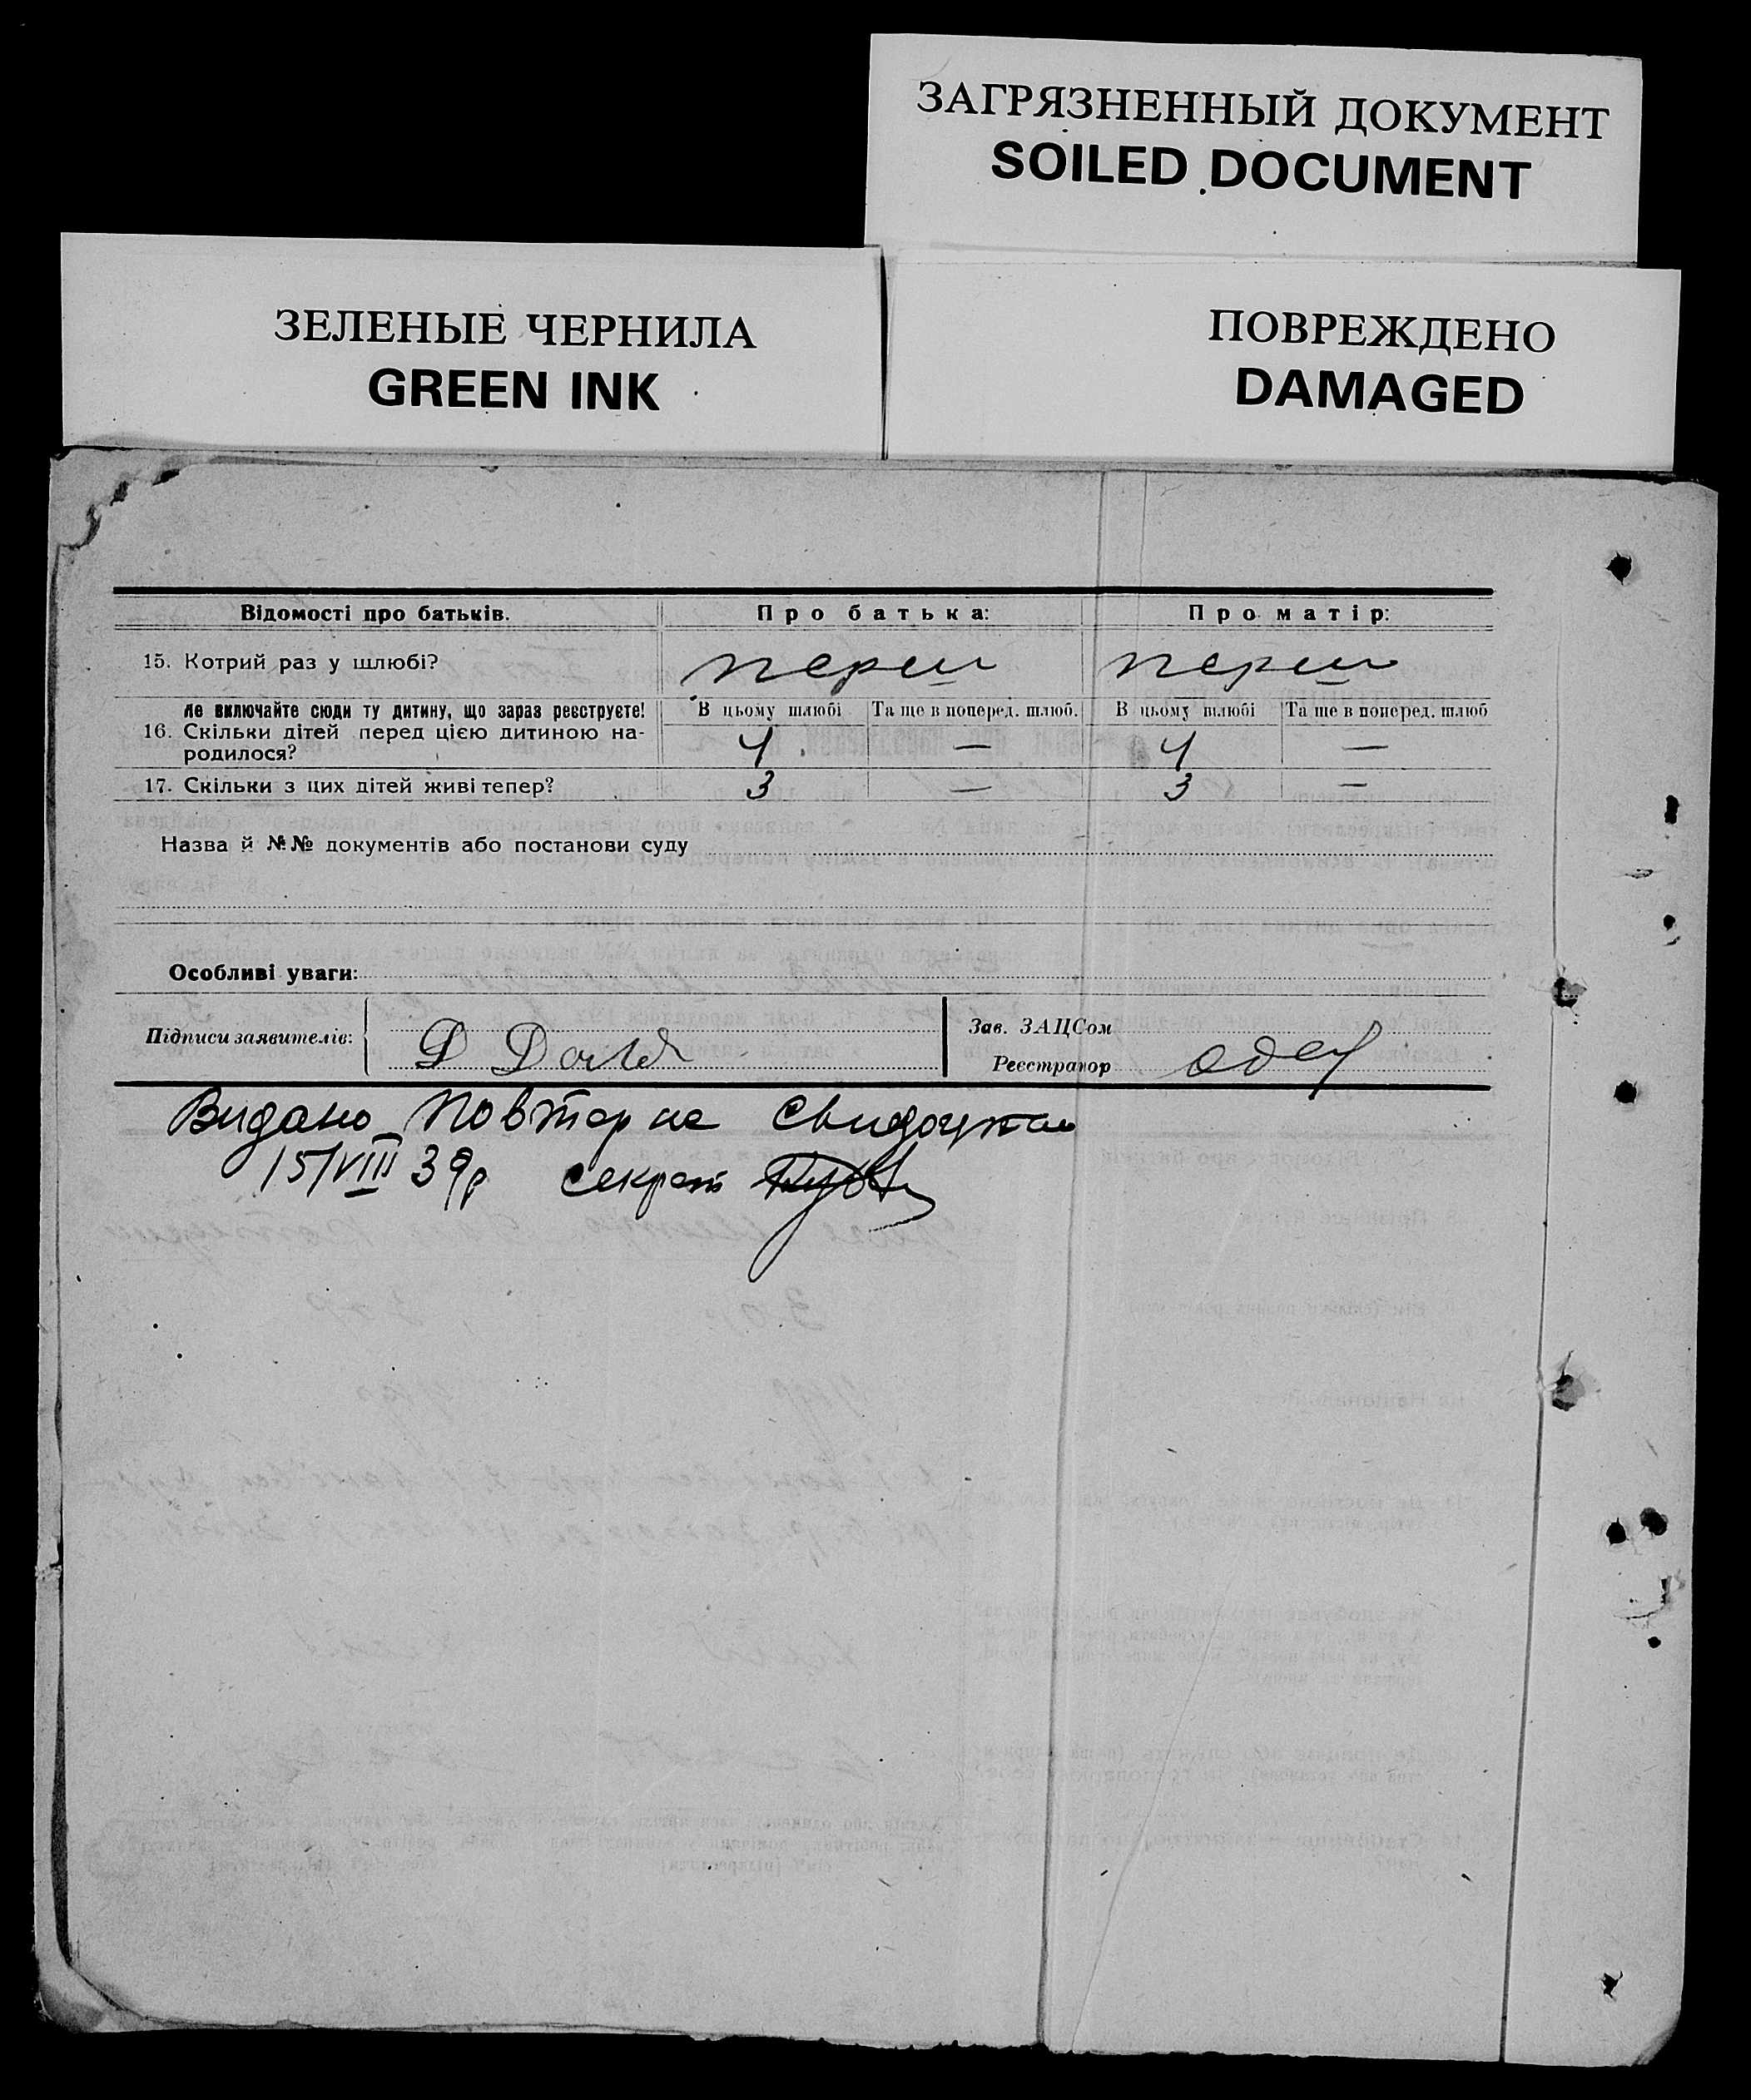 ЗАГРЯЗНЕННЫЙ ДОКУМЕНТ
SOILED DOCUMENT
ЗЕЛЕНЫЕ ЧЕРНИЛА
GREEN INK
ПОВРЕЖДЕНО
DAMAGED
Відомості про батьків. Про батька: Про матір:
15. Котрий раз у шлюбі? перш перш
Не включайте сюди ту дитину, що зараз реєструєте! В цьому шлюбі Та ще в поперед. шлюб. В цьому шлюбі Та ще в поперед. шлюб
16. Скільки дітей перед цією дитиною на-
родилося? 4 — 4 —
17. Скільки з цих дітей живі тепер? 3 — 3 —
Назва й №№ документів або постанови суду
Особливі уваги:
Підписи заявителів:
Зав. ЗАЦСом
Реєстратор
Видано повторне свидоцтво
15/VIII 39р секрет